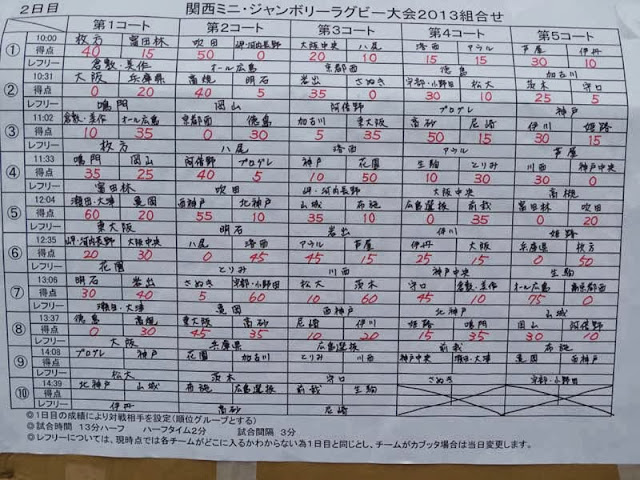 2日目 関西ミニ・ジャンボリーラグビー大会2013組合せ
第1コート 第2コート 第3コート 第4コート 第5コート
① 10:00 枚方 富田林 吹田 岬・河内長野 大阪中央 八尾 洛西 アウル 芦屋 伊丹
得点 40 15 50 0 20 10 15 15 30 10
レフリー 倉敷・美作 オール広島 京都西 徳島 加古川
② 10:31 大阪 兵庫県 高槻 明石 岩出 さぬき 宇部・小野田 松大 茨木 守口
得点 0 20 40 5 35 0 30 10 25 5
レフリー 鳴門 岡山 阿倍野 プログレ 神戸
③ 11:02 倉敷・美作 オール広島 京都西 徳島 加古川 東大阪 高砂 尼崎 伊川 姫路
得点 10 35 0 30 5 35 50 15 30 15
レフリー 枚方 八尾 洛西 アウル 芦屋
④ 11:33 鳴門 岡山 阿倍野 プログレ 神戸 花園 生駒 とりみ 川西 神戸中央
得点 35 25 40 5 10 50 10 30 30 0
レフリー 富田林 吹田 岬・河内長野 大阪中央 高槻
⑤ 12:04 瀬田・大津 亀岡 西神戸 北神戸 山城 布施 広島選抜 前哉 富田林 吹田
得点 60 20 55 10 35 10 0 35 0 20
レフリー 東大阪 明石 岩出 伊川 姫路
⑥ 12:35 岬・河内長野 大阪中央 八尾 洛西 アウル 芦屋 伊丹 大阪 兵庫県 枚方
得点 20 30 0 45 45 15 25 15 0 50
レフリー 花園 とりみ 川西 神戸中央 生駒
⑦ 13:06 明石 岩出 さぬき 宇部・小野田 松大 茨木 守口 倉敷・美作 オール広島 南京都西
得点 30 40 5 60 10 60 45 10 75 0
レフリー 瀬田・大津 亀岡 西神戸 北神戸 山城
⑧ 13:37 徳島 高槻 東大阪 高砂 尼崎 伊川 姫路 鳴門 岡山 阿倍野
得点 0 30 45 35 10 20 15 35 30 10
レフリー 大阪 兵庫県 広島選抜 前哉 布施
⑨ 14:08 プログレ 神戸 花園 加古川 とりみ 川西 神戸中央 瀬田・大津 亀岡 西神戸
得点
レフリー 松大 茨木 守口 さぬき 宇部・小野田
⑩ 14:39 北神戸 山城 布施 広島選抜 前哉 生駒
得点
レフリー 伊丹 高砂 尼崎
◎1日目の成績により対戦相手を設定(順位グループとする)
◎試合時間 13分ハーフ ハーフタイム2分 試合間隔 3分
◎レフリーについては、現時点では各チームがどこに入るかわからない為1日目と同じとし、チームがカブッタ場合は当日変更します。